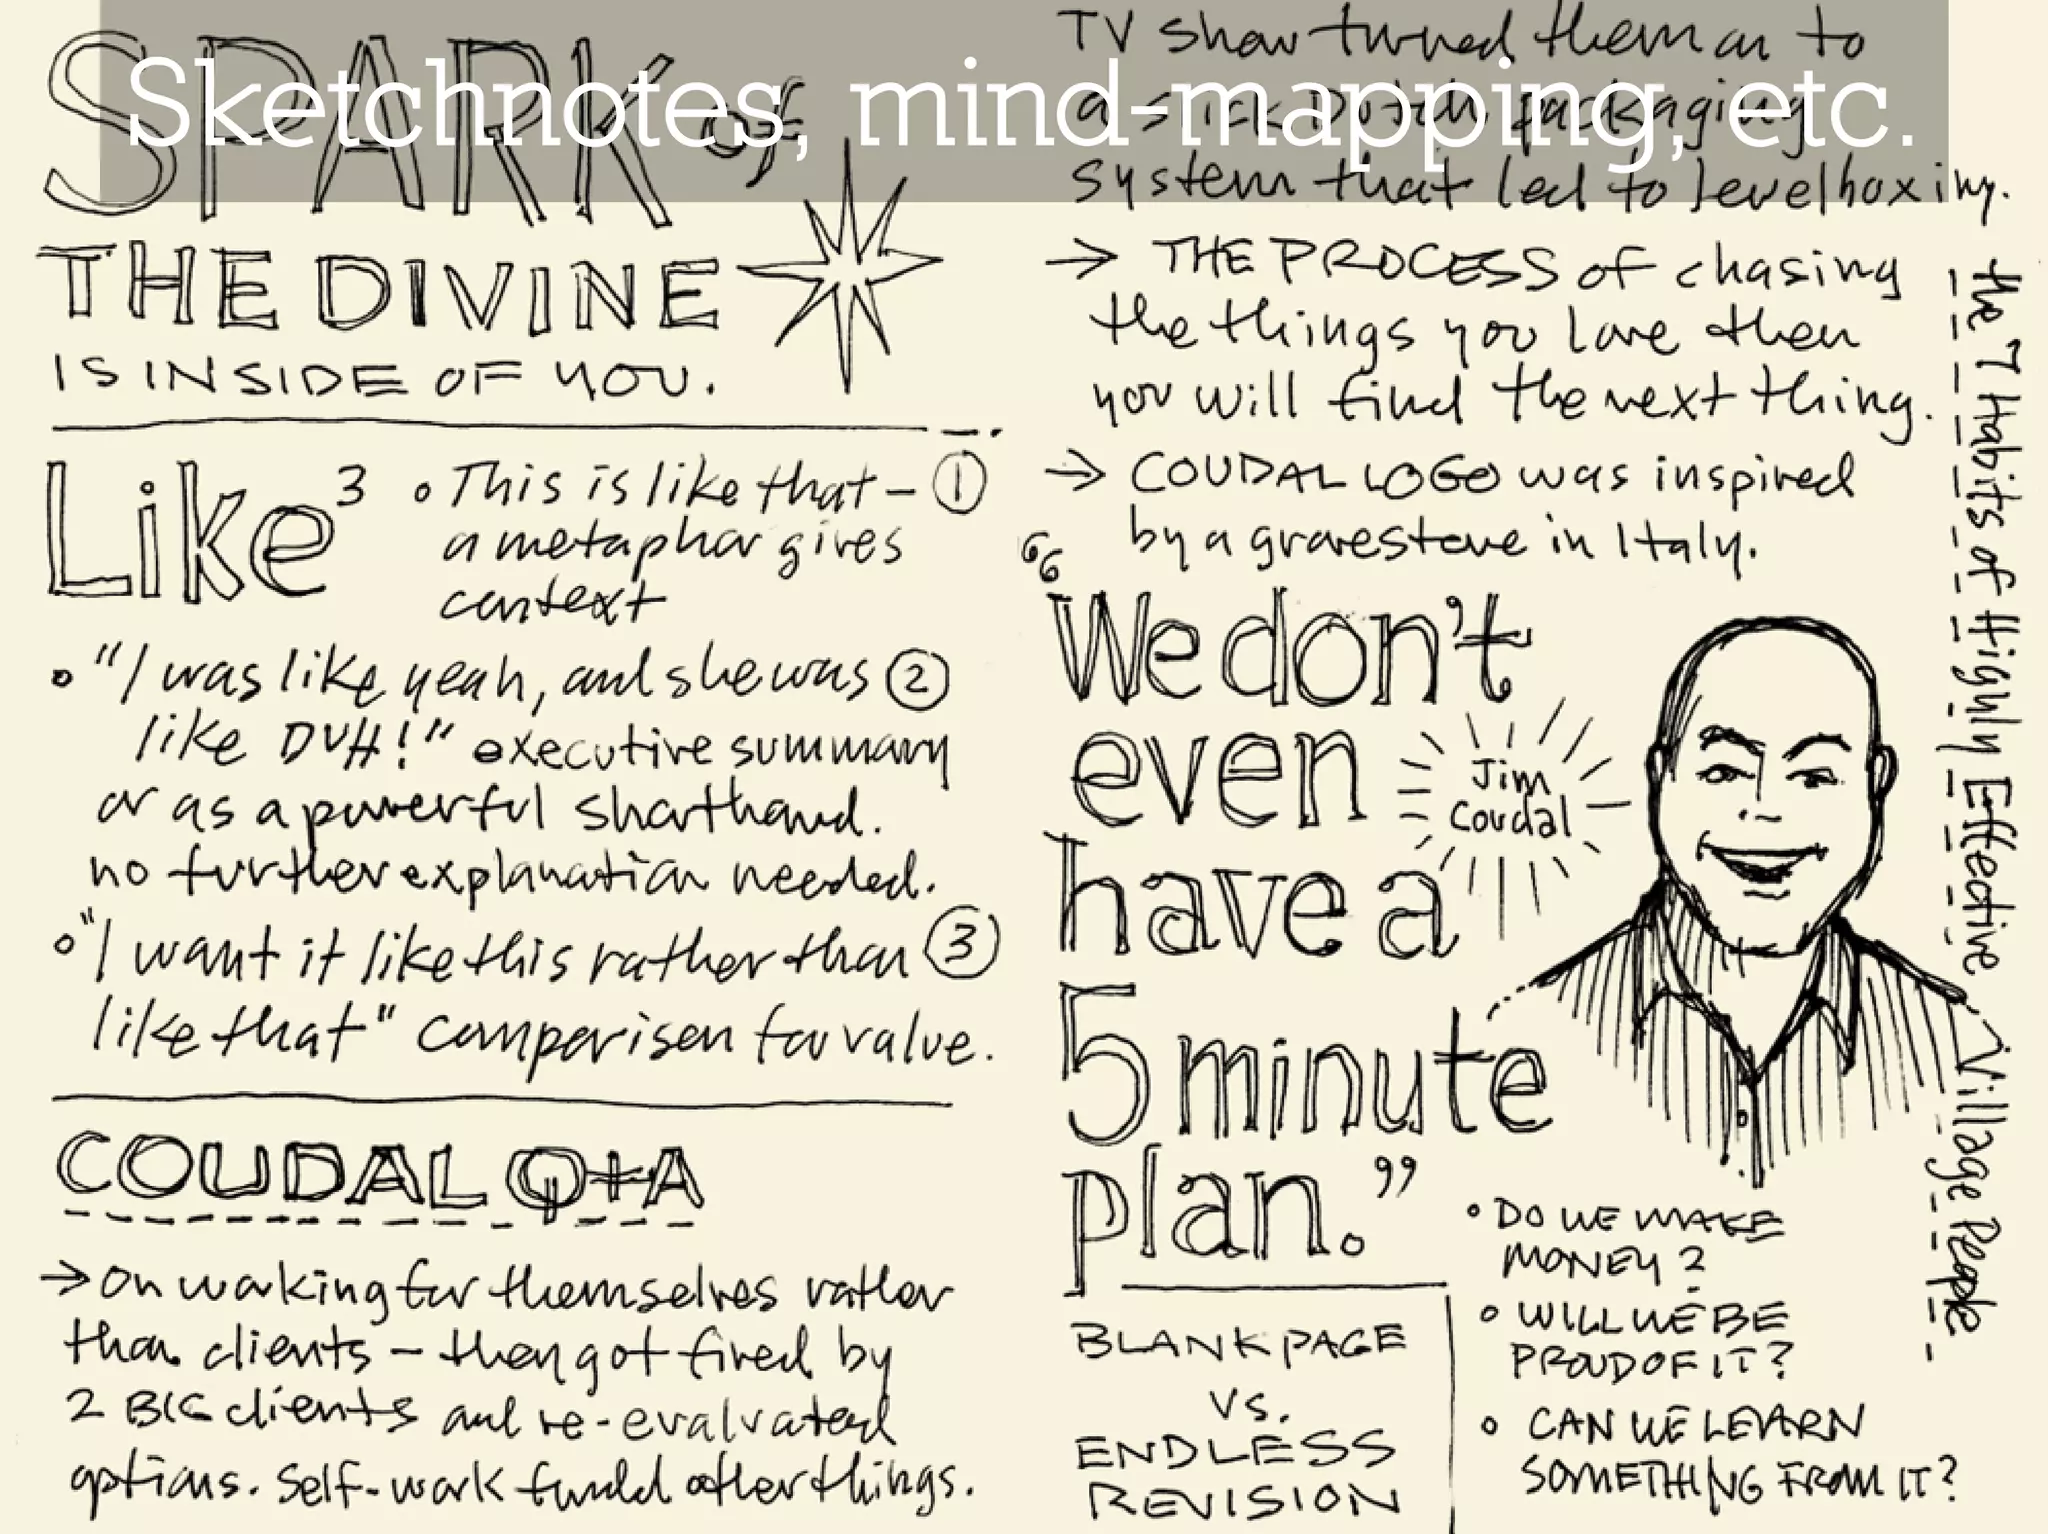 Sketchnotes, mind-mapping, etc.
SPARK OF
THE DIVINE
IS INSIDE OF YOU.
Like³
• This is like that – ①
a metaphor gives
context
• "I was like yeah, and she was ②
like DUH!" executive summary
or as a powerful shorthand.
no further explanation needed.
• "I want it like this rather than ③
like that" comparison for value.
COUDAL Q+A
→ on working for themselves rather
than clients – then got fired by
2 BIG clients and re-evaluated
options. Self-work fund other things.
TV show turned them on to
a slick Dutch packaging
system that led to jewelboxing.
→ THE PROCESS of chasing
the things you love then
you will find the next thing.
→ COUDAL LOGO was inspired
by a gravestone in Italy.
“We don't
even
have a
5 minute
plan.”
Jim
Coudal
BLANK PAGE
VS.
ENDLESS
REVISION
• DO WE MAKE
MONEY?
• WILL WE BE
PROUD OF IT?
• CAN WE LEARN
SOMETHING FROM IT?
the 7 Habits of Highly Effective Village People